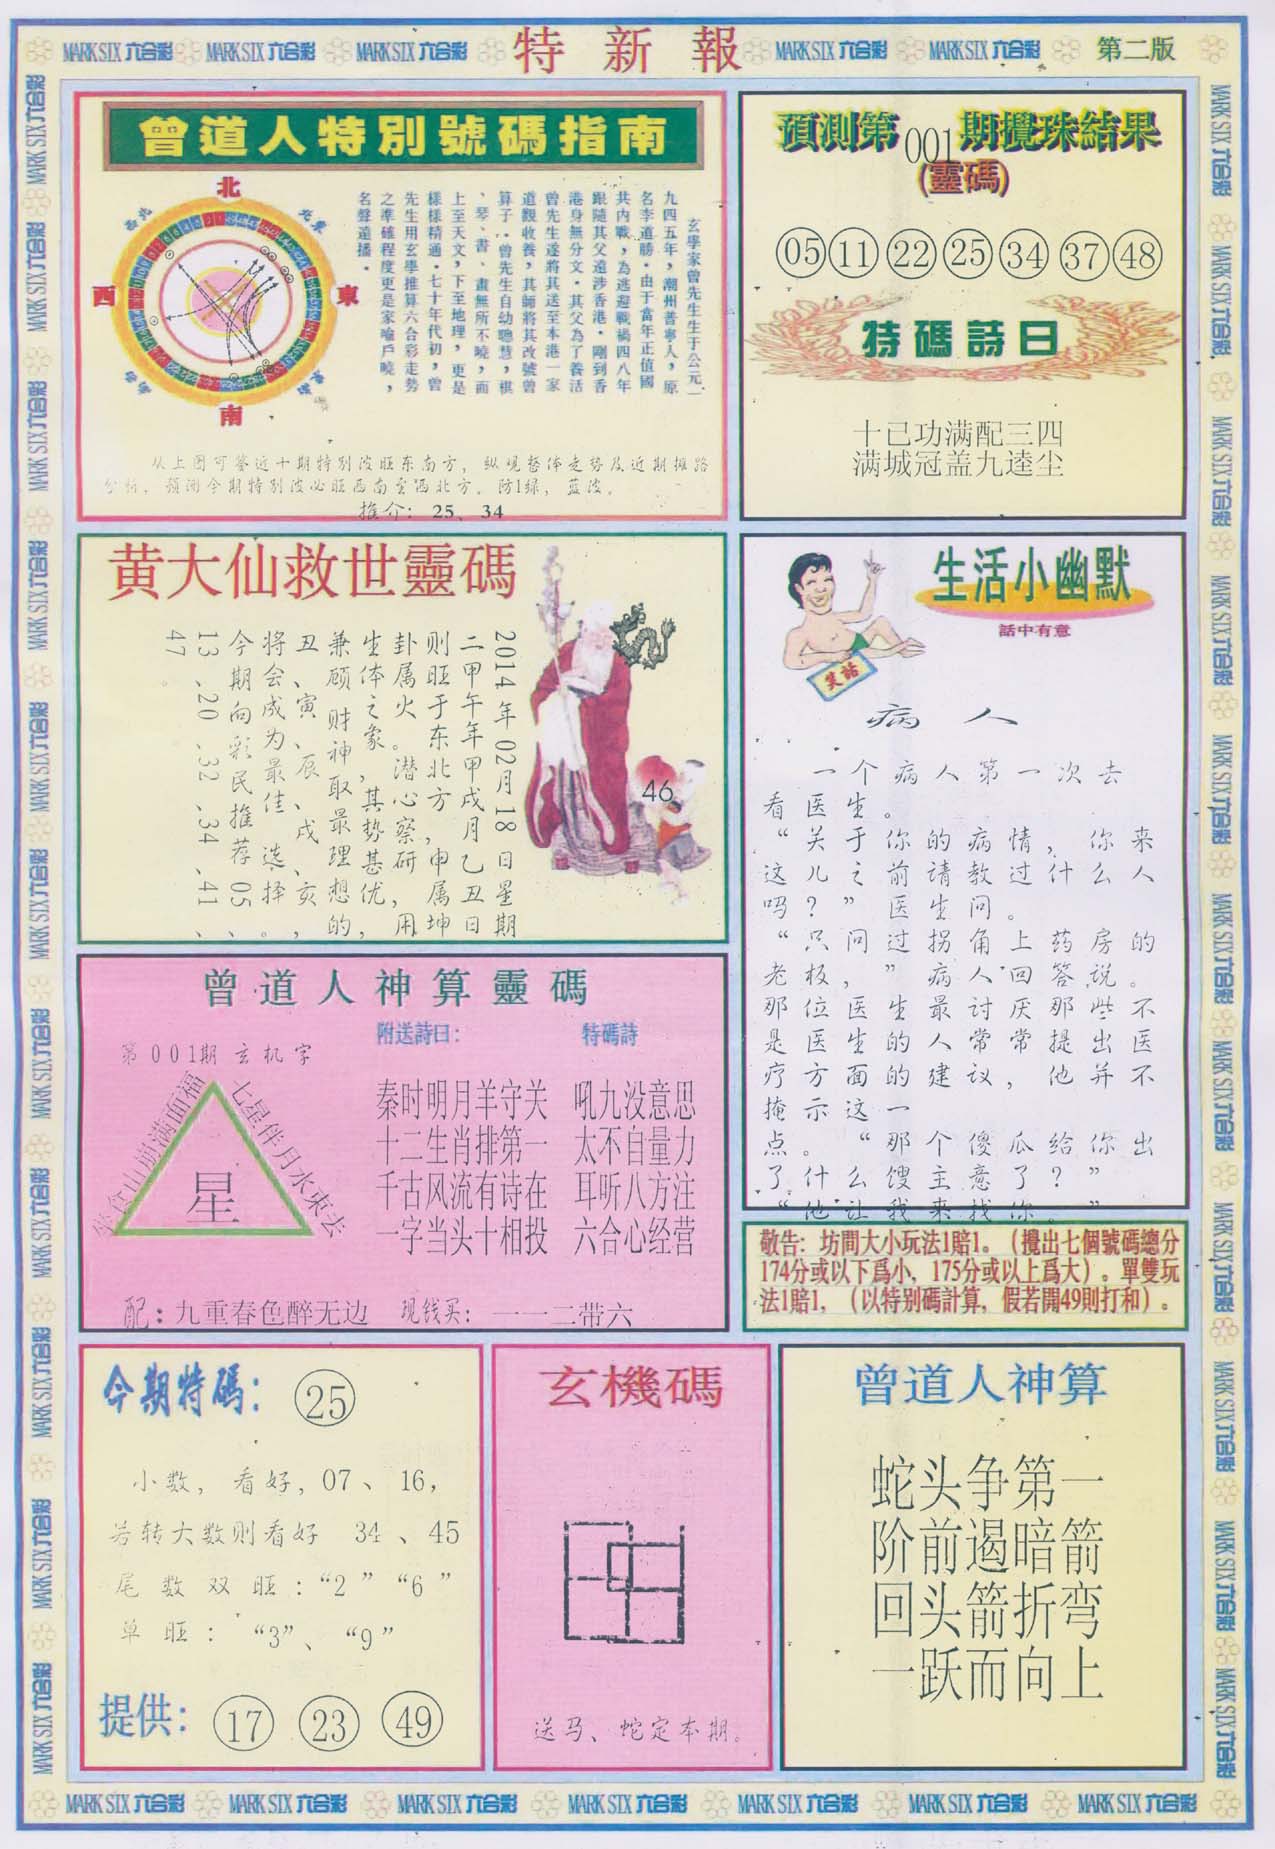 MARK SIX 六合彩 MARK SIX 六合彩 MARK SIX 六合彩 特新報 MARK SIX 六合彩 MARK SIX 六合彩 第二版
曾道人特別號碼指南
北
東
南
西
西北
東北
玄學家曾先生生于公元一
九四五年，潮州普寧人，原
名李道勝。由于當年正值國
共內戰，為逃避戰禍四八年
跟隨其父遠涉香港。剛到香
港身無分文。其父為了養活
曾先生遂將其送至本港一家
道觀收養，其師將其改號曾
算子。曾先生自幼聰慧，棋
、琴、書、畫無所不曉，而
上至天文，下至地理，更是
樣樣精通。七十年代初，曾
先生用玄學推算六合彩走勢
之準確程度更是家喻戶曉，
名聲遠播。
从上图可鉴近十期特别波旺东南方，纵观整体走势及近期摊路
分析，预测今期特别波必旺西南至西北方。防1绿，蓝波。
推介：25、34
預測第001期攪珠結果
(靈碼)
05 11 22 25 34 37 48
特碼詩曰
十已功满配三四
满城冠盖九逵尘
黄大仙救世靈碼
2014年02月18日星期
二甲午年甲戌月乙丑日
则旺于东北方，申属坤
卦属火。潜心察研，用
生体之象，其势甚优，
兼顾财神取最理想的，
丑、寅、辰、戌、亥，
将会成为最佳选择。
今期向彩民推荐05、
13、20、32、34、41、
47。
46
生活小幽默
話中有意
笑話
病人
一个病人第一次去
看医生。
“关于你的病情，你来
这儿之前请教过什么人
吗？”医生问。
“只问过拐角上药房的
老板，”病人回答说。
那位医生最讨厌那些不
是医生的人常常提出医
疗方面的建议，他并不
掩示这一
点。“那个傻瓜给你出
了什么馊主意了？”
“他让我来找你。”
曾道人神算靈碼
附送詩曰：
特碼詩
第001期玄机字
坐食山崩满面福
七星伴月水東去
星
秦时明月羊守关
十二生肖排第一
千古风流有诗在
一字当头十相投
吼九没意思
太不自量力
耳听八方注
六合心经营
配：九重春色醉无边
现钱买：一一二带六
敬告：坊間大小玩法1賠1。（攪出七個號碼總分
174分或以下爲小，175分或以上爲大）。單雙玩
法1賠1，（以特别碼計算，假若開49則打和）。
今期特碼：25
小数，看好，07、16，
若转大数则看好 34、45
尾数双旺：“2”“6”
单旺：“3”、“9”
提供：17 23 49
玄機碼
送马、蛇定本期。
曾道人神算
蛇头争第一
阶前遏暗箭
回头箭折弯
一跃而向上
MARK SIX 六合彩 MARK SIX 六合彩 MARK SIX 六合彩 MARK SIX 六合彩 MARK SIX 六合彩 MARK SIX 六合彩 MARK SIX 六合彩